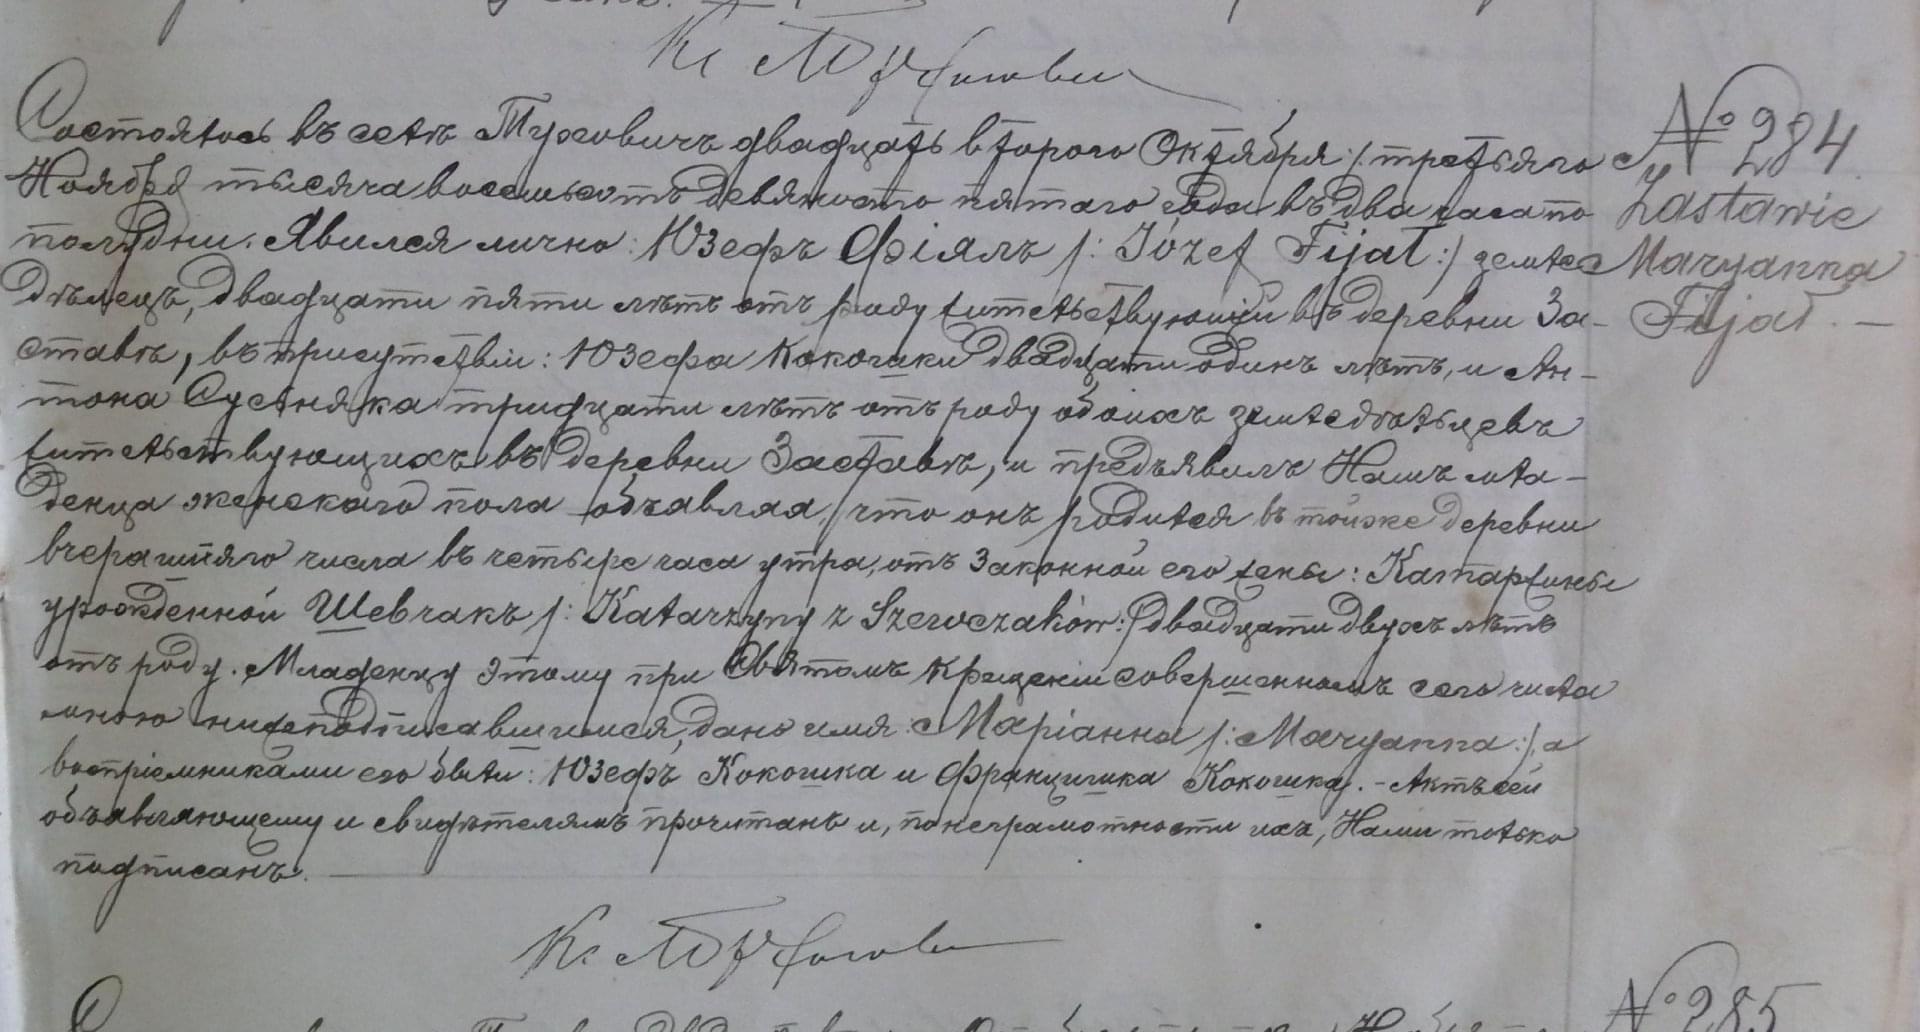 Состоялось въ селѣ Туровичъ двадцать второго Октября /: третьяго
Ноября тысяча восемьсотъ девяносто пятаго года въ два часа по
полудни. Явился лично: Юзефъ Фіялъ /: Józef Fijał :/ землед
дѣлецъ, двадцати пяти лѣтъ отъ роду жительствующій въ деревни За-
ставѣ, въ присутствіи: Юзефа Кокошки двадцати одинъ лѣтъ, и Ан-
тона Сусьняка тридцати лѣтъ отъ роду обоихъ земледѣльцевъ
жительствующихъ въ деревни Заставѣ, и предъявилъ Намъ мла-
денца женскаго пола объявляя, что онъ родился въ тойже деревни
вчерашняго числа въ четыре часа утра, отъ законной его жены: Катаржины
урожденной Шевчакъ /: Katarzyny z Szewczaków :/ двадцати двухъ лѣтъ
отъ роду. Младенцу этому при Святомъ Крещеніи совершенномъ сего числа
мною нижеподписавшимся, дано имя: Маріанна /: Maryanna :/, а
воспріемниками его были: Юзефъ Кокошка и Францишка Кокошка. - Актъ сей
объявляющему и свидѣтелямъ прочитанъ и, по неграмотности ихъ, Нами только
подписанъ.
№ 284
Zastawie
Maryanna
Fijał. —
№ 285